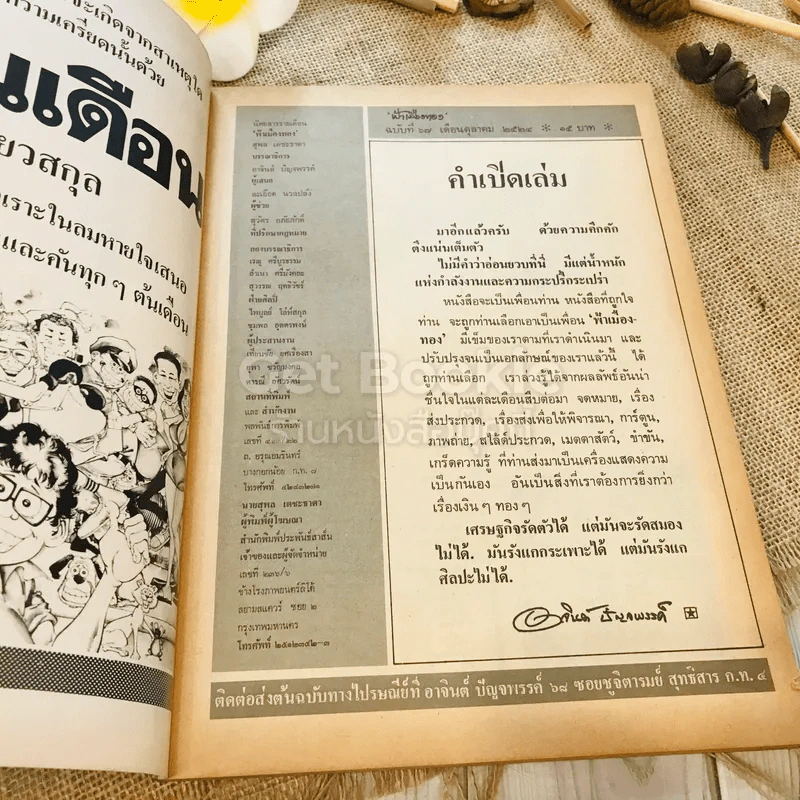 จะเกิดจากสาเหตุใด
ความเครียดนั้นด้วย
นเดือน
ยวสกุล
เราะในลมหายใจเสมอ
และคันทุก ๆ ต้นเดือน
'ฟ้าเมืองทอง'
สุพล เตชะธาดา
บรรณาธิการ
อาจินต์ ปัญจพรรค์
ผู้ช่วย
สุวัตร อภัยภักดิ์
ที่ปรึกษากฎหมาย
กองบรรณาธิการ
ฝ่ายศิลป์
ผู้ประสานงาน
สถานที่พิมพ์
และ สำนักงาน
ถ. จรัญสนิทวงศ์
บางกอกน้อย ก.ท. ๘
นายสุพล เตชะธาดา
ผู้พิมพ์ผู้โฆษณา
สำนักพิมพ์ประพันธ์สาส์น
เจ้าของและผู้จัดจำหน่าย
เลขที่ ๒๓๖/๖
ข้างโรงภาพยนตร์ลิโด้
สยามสแควร์ ซอย ๒
กรุงเทพมหานคร
โทรศัพท์ ๒๕๑๒๓๔๒-๓
'ฟ้าเมืองทอง'
ฉบับที่ ๖๗ เดือนตุลาคม ๒๕๒๔ * ๑๕ บาท *
คำเปิดเล่ม
มาอีกแล้วครับ ด้วยความคึกคัก
ตึงแน่นเต็มตัว
ไม่มีคำว่าอ่อนยวบที่นี่ มีแต่น้ำหนัก
แห่งกำลังงานและความกระปรี้กระเปร่า
หนังสือจะเป็นเพื่อนท่าน หนังสือที่ถูกใจ
ท่าน จะถูกท่านเลือกเอาเป็นเพื่อน 'ฟ้าเมือง-
ทอง' มีเข็มของเราตามที่เราดำเนินมา และ
ปรับปรุงจนเป็นเอกลักษณ์ของเราแล้วนี้ ได้
ถูกท่านเลือก เราล่วงรู้ได้จากผลลัพธ์อันน่า
ชื่นใจในแต่ละเดือนสืบต่อมา จดหมาย, เรื่อง
ส่งประกวด, เรื่องส่งเพื่อให้พิจารณา, การ์ตูน,
ภาพถ่าย, สไลด์ประกวด, เมตตาสัตว์, ขำขัน,
เกร็ดความรู้ ที่ท่านส่งมาเป็นเครื่องแสดงความ
เป็นกันเอง อันเป็นสิ่งที่เราต้องการยิ่งกว่า
เรื่องเงิน ๆ ทอง ๆ
เศรษฐกิจรัดตัวได้ แต่มันจะรัดสมอง
ไม่ได้. มันรังแกกระเพาะได้ แต่มันรังแก
ศิลปะไม่ได้.
อาจินต์ ปัญจพรรค์
ติดต่อส่งต้นฉบับทางไปรษณีย์ที่ อาจินต์ ปัญจพรรค์ ๖๘ ซอยชูจิตารมย์ สุทธิสาร ก.ท. ๔
Get Bookie